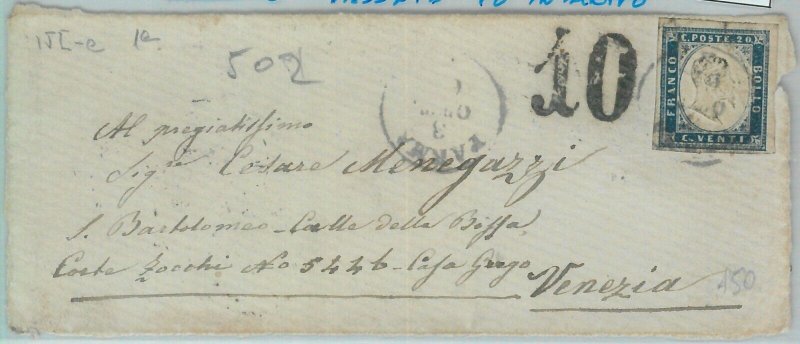 15E-e 1a
502
10
C. POSTE. 20.
FRANCO
BOLLO
C. VENTI
PARMA
3
Al pregiatissimo
Sigre Cesare Menegazzi
S. Bartolomeo - Calle della Bissa
Corte Zocchi No 5446 - Casa
Venezia
150